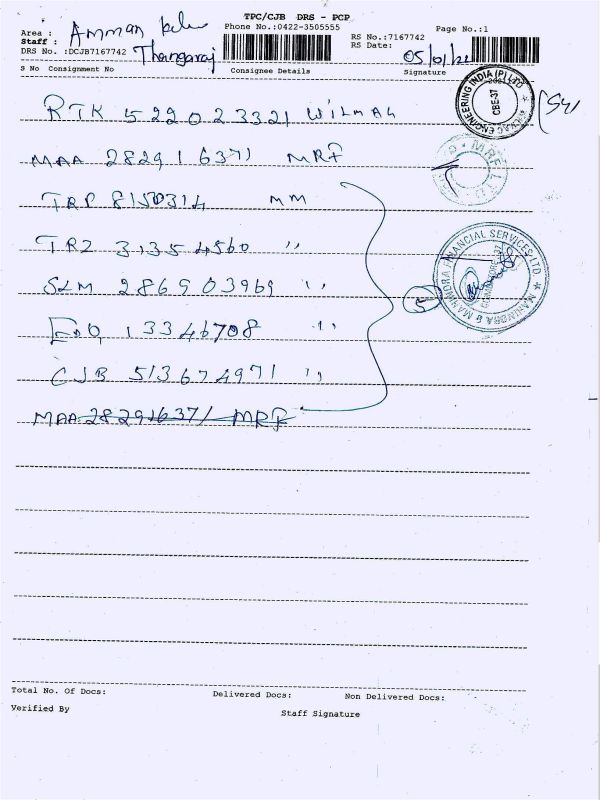 TPC/CJB DRS - PCP
Area : Amman
Phone No.:0422-3505555
Page No.:1
Staff : Thangaraj
RS No.:7167742
DRS No. :DCJB7167742
RS Date: 05/01/22
S No Consignment No
Consignee Details
Signature
RTK 522023321 WILMAG
MAA 282916371 MRF
TRP 8150314 MM
TRZ 31354560 "
SLM 286903969 "
EDQ 13346708 "
CJB 513674971 "
MAA 282916371 MRF
ENGINEERING INDIA (P) LTD
CBE-37
MRF LTD
MAHINDRA & MAHINDRA FINANCIAL SERVICES LTD.
5
Total No. Of Docs:
Delivered Docs:
Non Delivered Docs:
Verified By
Staff Signature